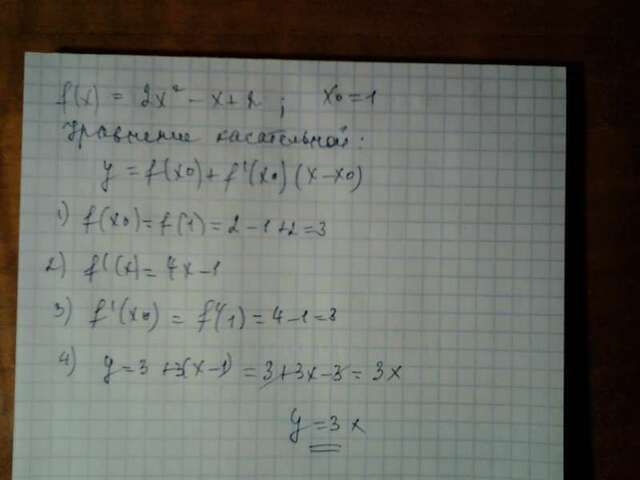 f(x) = 2x² - x + 2 ; x₀ = 1
Уравнение касательной:
y = f(x₀) + f'(x₀)(x - x₀)
1) f(x₀) = f(1) = 2 - 1 + 2 = 3
2) f'(x) = 4x - 1
3) f'(x₀) = f'(1) = 4 - 1 = 3
4) y = 3 + 3(x - 1) = 3 + 3x - 3 = 3x
y = 3x